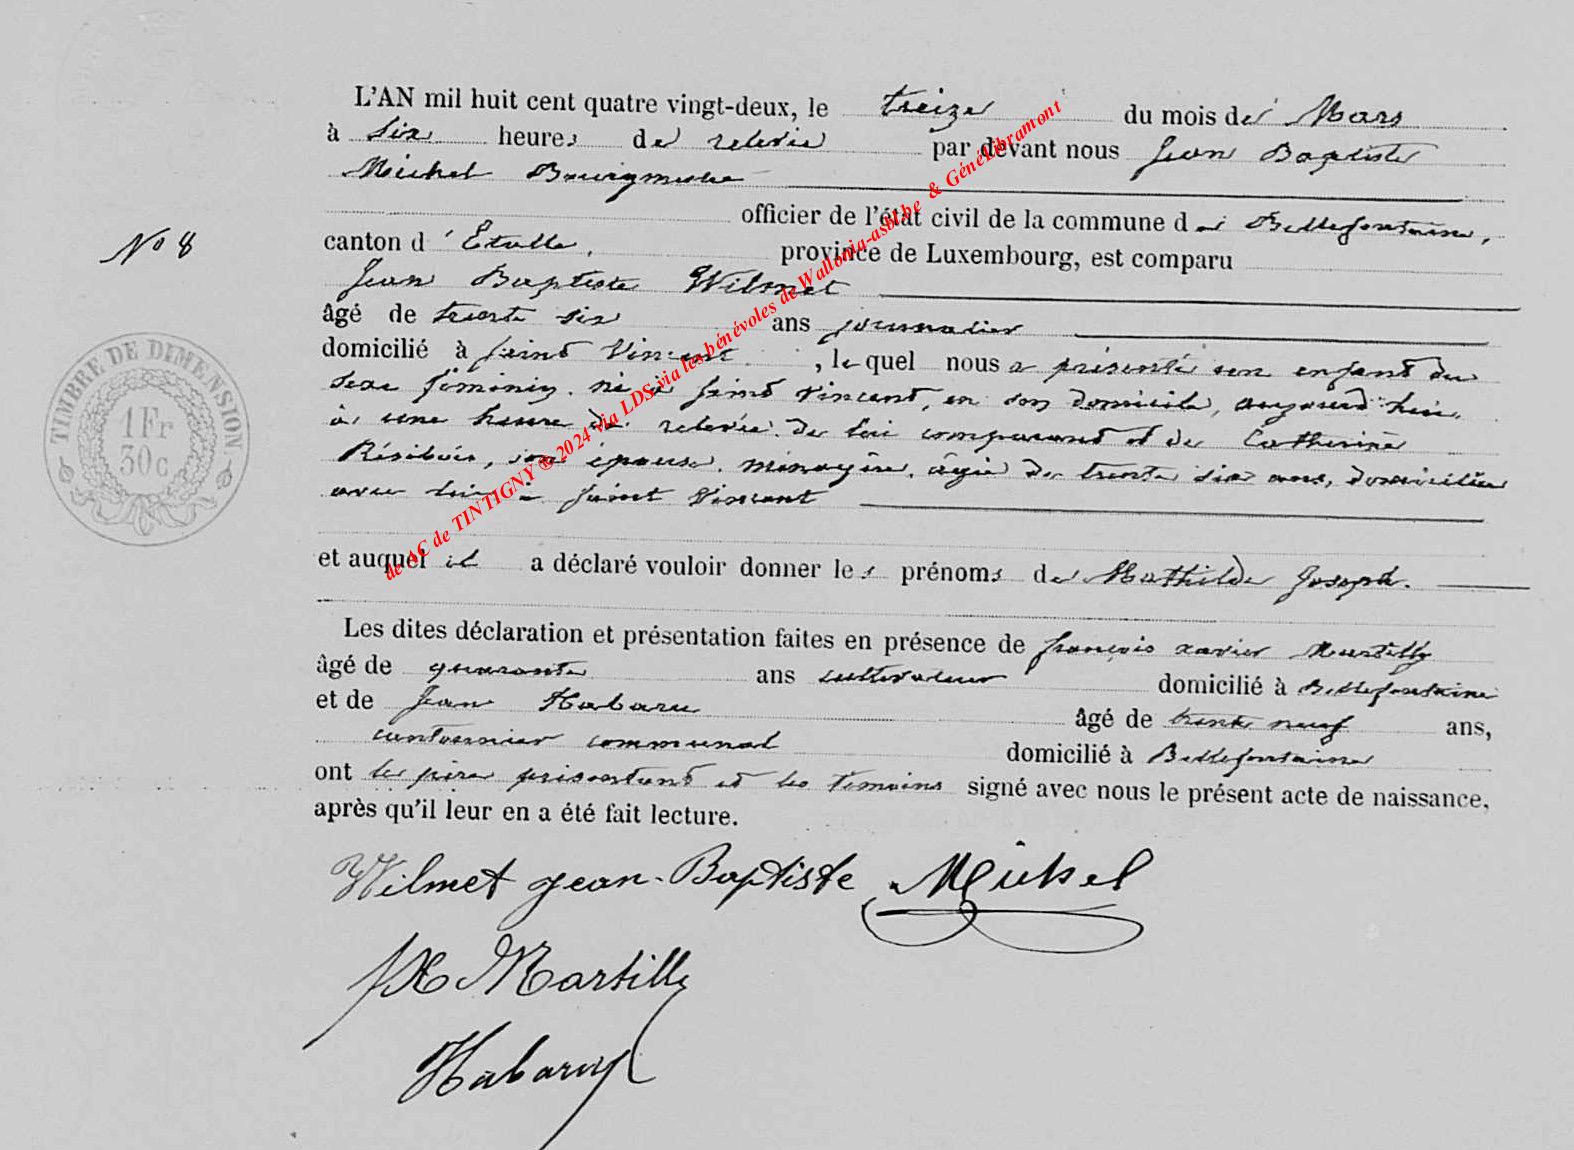 L'AN mil huit cent quatre vingt-deux, le treize du mois de Mars
à six heures de relevée par devant nous Jean Baptiste
Michel Bourgmestre
officier de l'état civil de la commune de Bellefontaine,
N° 8
canton d'Etalle, province de Luxembourg, est comparu
Jean Baptiste Wilmet
âgé de trente six ans journalier
domicilié à Saint Vincent, lequel nous a présenté un enfant du
sexe féminin, né à Saint Vincent, en son domicile, aujourd'hui,
à une heure de relevée, de lui comparant et de Catherine
son épouse, ménagère, âgée de trente six ans, domiciliée
avec lui à Saint Vincent
TIMBRE DE DIMENSION
1 Fr
30 c
et auquel il a déclaré vouloir donner les prénoms de Mathilde Joseph.
Les dites déclaration et présentation faites en présence de françois xavier Martilly
âgé de quarante ans cultivateur domicilié à Bellefontaine
et de Jean Habaru âgé de trente neuf ans,
cantonnier communal domicilié à Bellefontaine
ont le père présentant et les témoins signé avec nous le présent acte de naissance,
après qu'il leur en a été fait lecture.
Wilmet jean-Baptiste Michel
fX Martilly
Habaru
de AC de TINTIGNY ® 2024 via LDS via les bénévoles de Wallonia-asbl.be & GénéLibramont